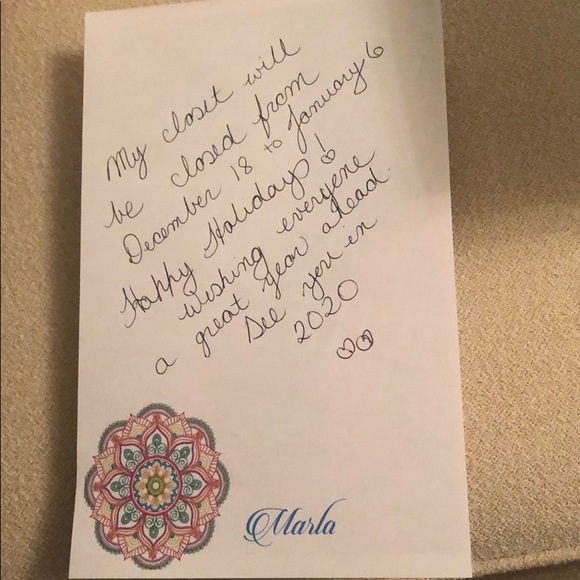 My closet will
be closed from
December 18 to January 6
Happy Holidays!
Wishing everyone
a great year ahead.
See you in
2020
Marla